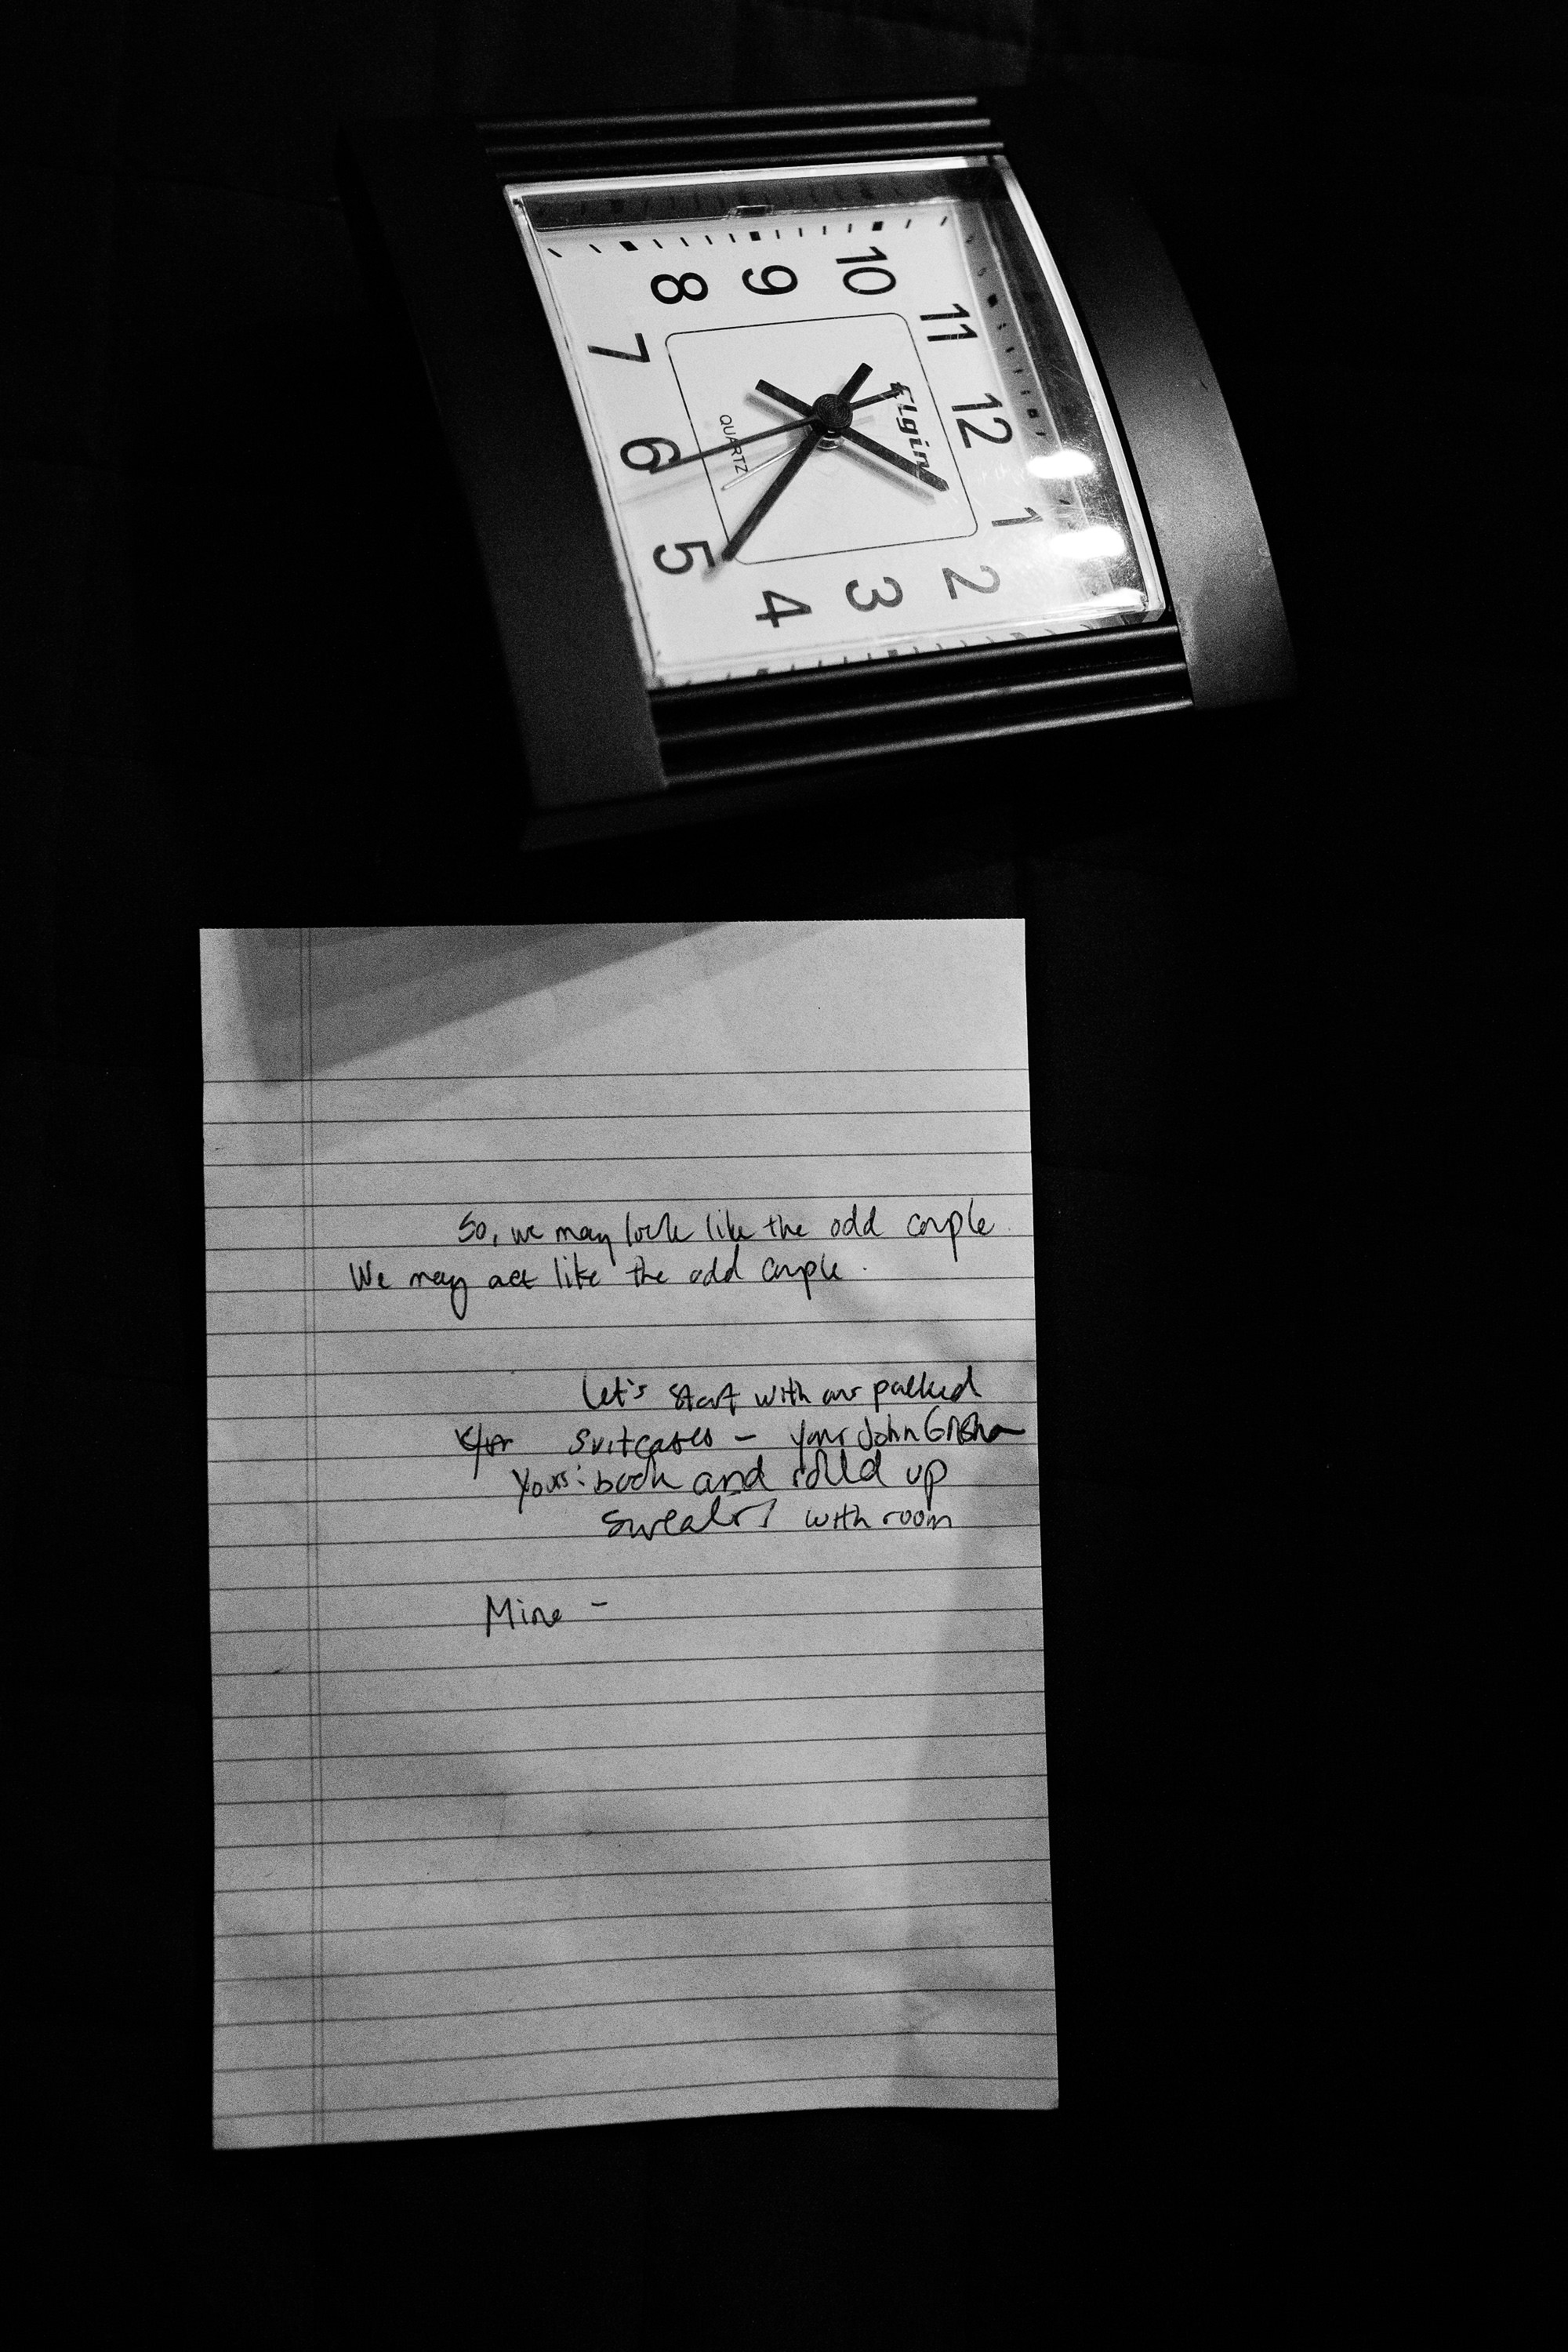 10
9
8
11
7
Elgin
12
QUARTZ
6
1
5
2
3
4
So, we may look like the odd couple.
We may act like the odd couple.
Let's start with our packed
suitcases - your John Grisham
Yours: book and rolled up
sweaters with room
Mine -